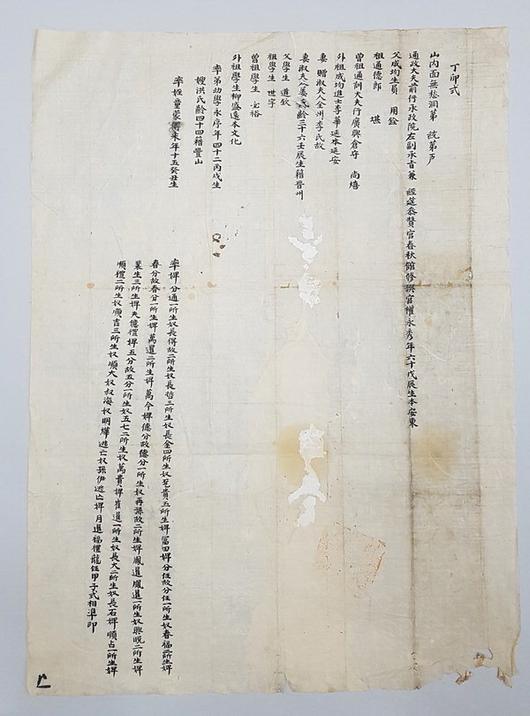 丁卯式
山內面無愁洞第 統第 戶
通政大夫前行承政院左副承旨兼 經筵參贊官春秋館修撰官權永秀年六十戊辰生本安東
父成均生員 用銓
祖通德郎 堪
曾祖通訓大夫行廣興倉守 尚熺
外祖成均進士李華 本延安
妻 贈淑夫人全州李氏故
妻淑夫人姜氏齡三十六壬辰生籍晉州
父學生 道欽
祖學生 世
曾祖學生 裕
外祖學生柳盛 本文化
率弟幼學永序年四十二丙戌生
嫂洪氏齡四十四籍豐山
率姪童蒙 年十五癸丑生
率婢分通一所生奴長得故二所生奴長哲三所生奴長金四所生奴 貴五所生婢富田婢分任故分任一所生奴春福二所生婢
春分故春分一所生婢萬還二所生婢萬今婢德分故德分一所生奴再 故二所生婢鳳還 還一所生奴興 二所生婢
生三所生婢夫德禮婢五分故五分一所生奴五七二所生奴萬貴婢 還一所生奴長大二所生奴長石婢順占一所生婢
順禮二所生奴順吉三所生奴順大奴 奴明 婢 亡奴 伊逃亡婢月進福禮 任甲子式相準印